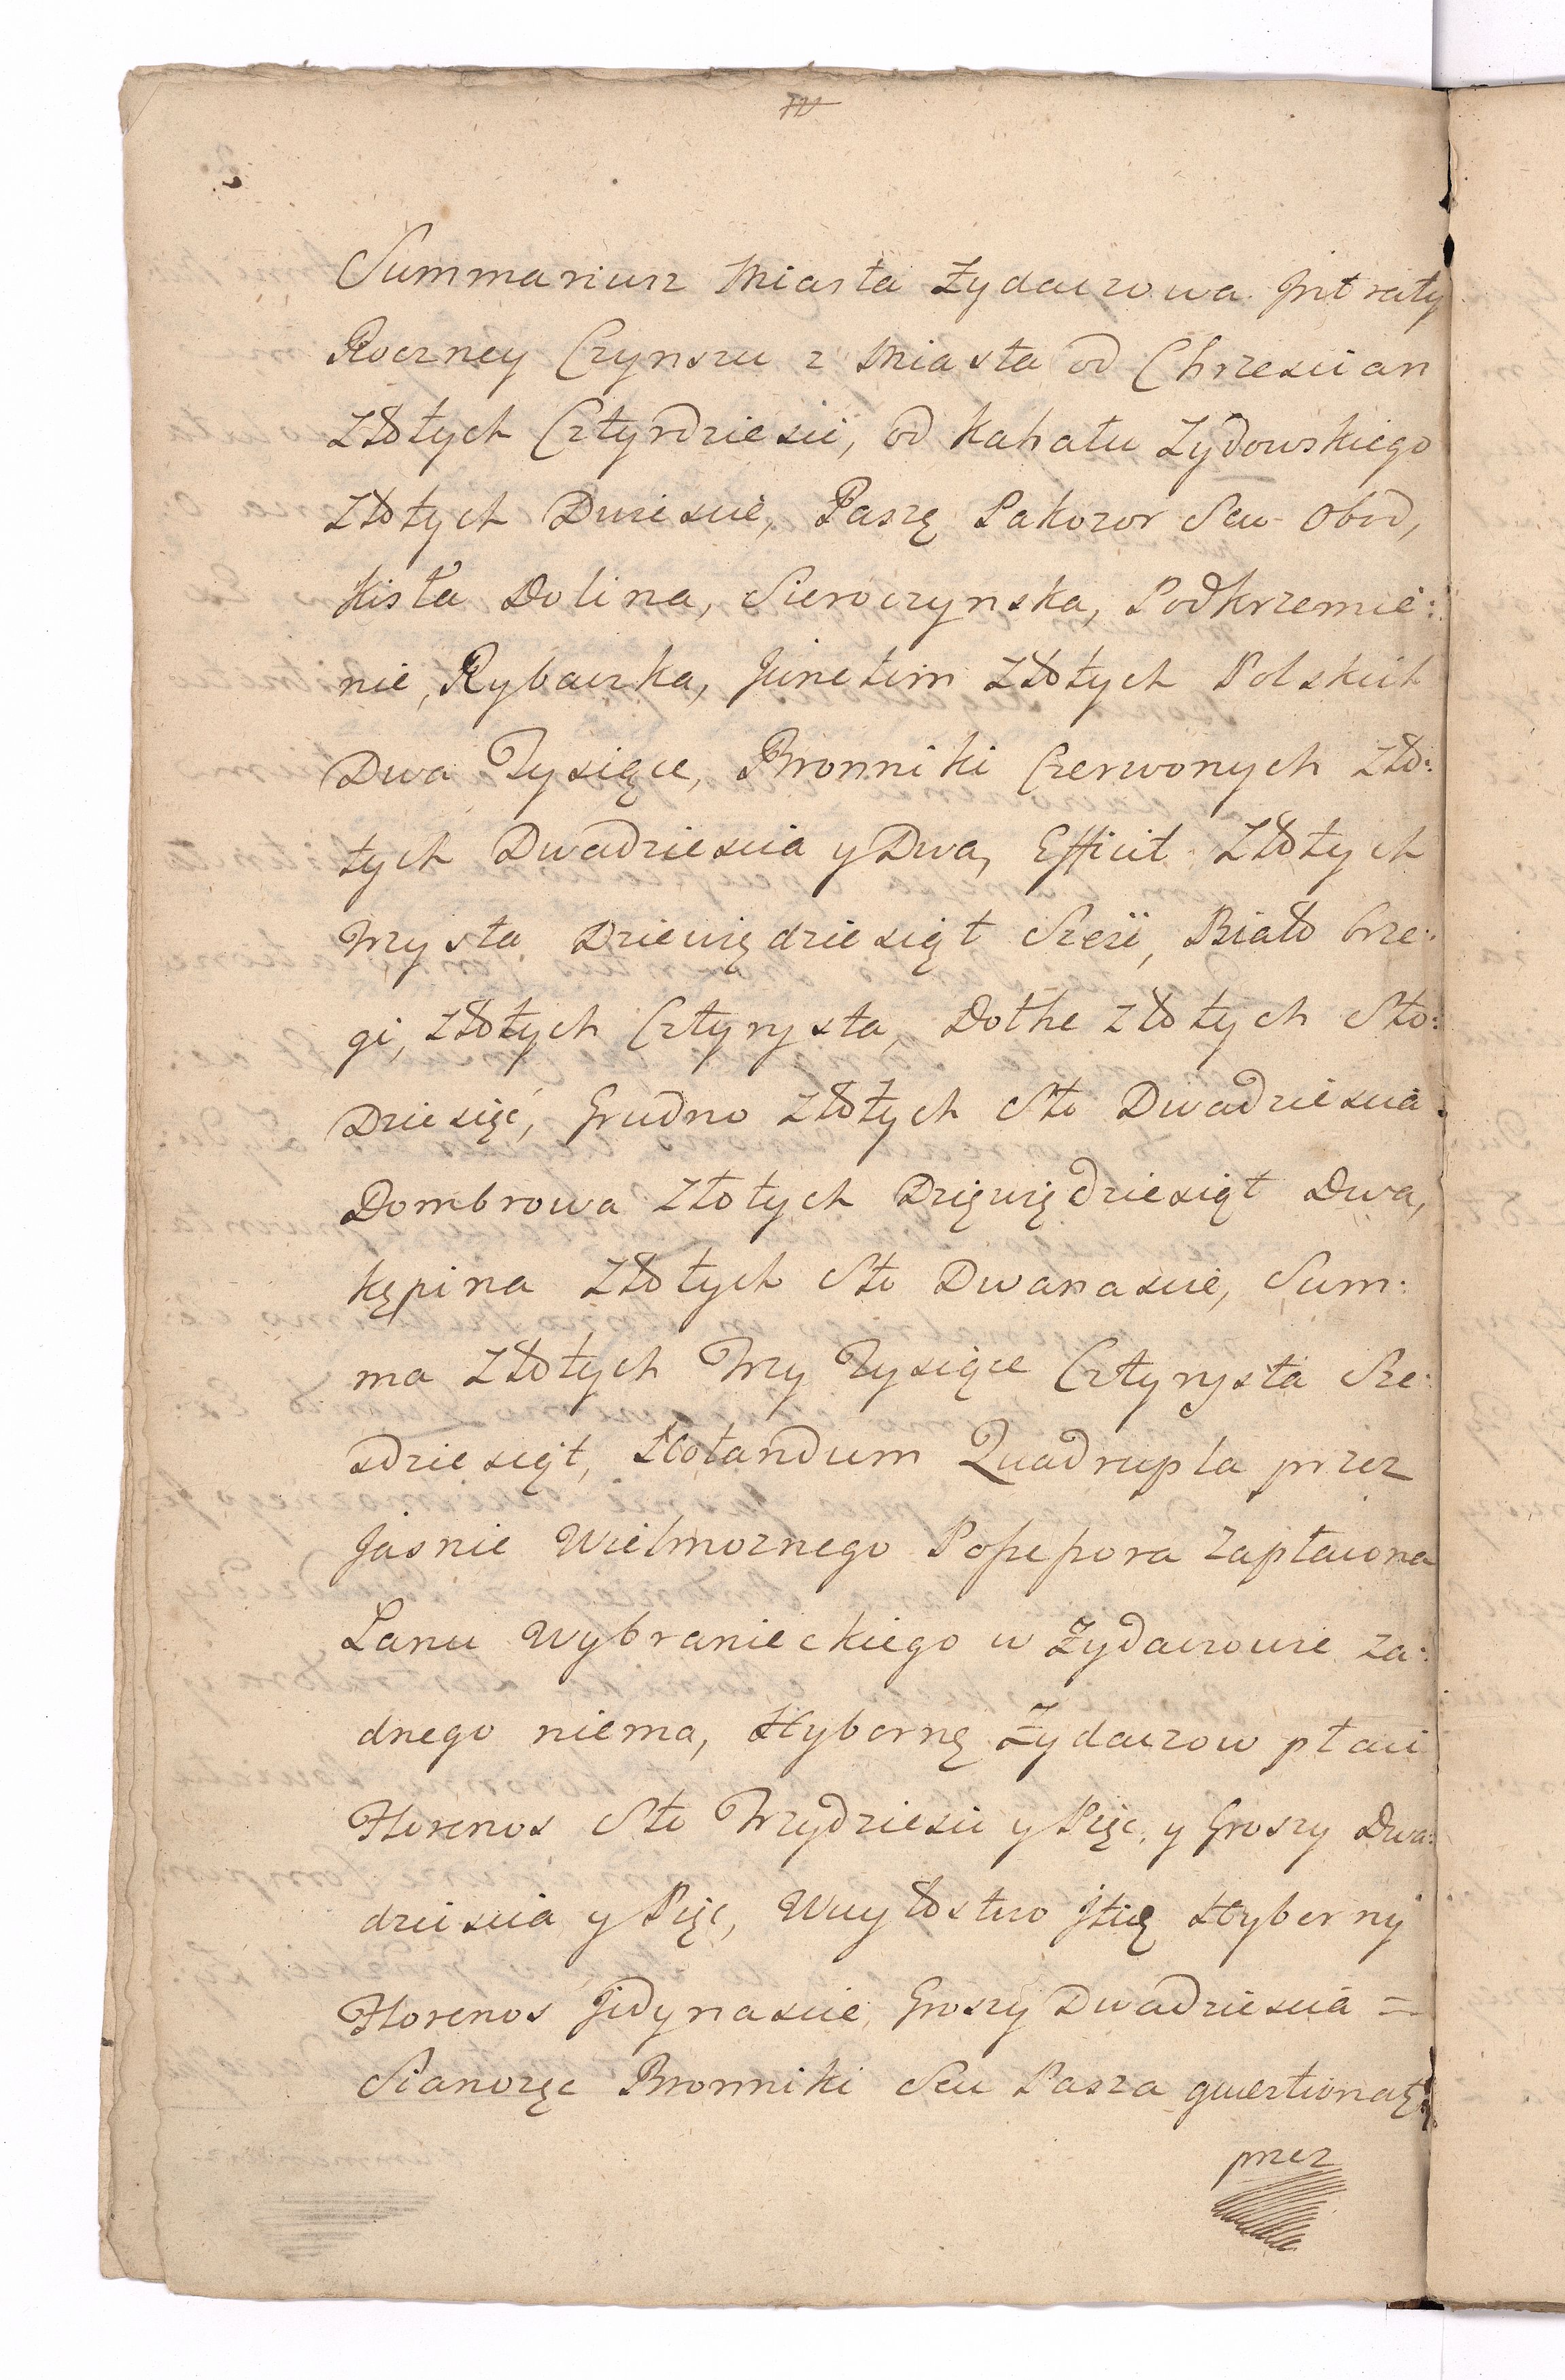 Summariusz Miasta Żydaczowa Jntraty
Roczney Czynszu z Miasta od Chrzescian
Złotych Cztyrdziesci, od Kahału Zydowskiego
Złotych Dwiescie, Paszę Lakozor Seu Obod,
Kisła Dolina, Sieroczynska, Podkrzemie:
nie, Rybaczka, Junctim Złotych Polskich
Dwa Tysiące, Bronniki Czerwonych Zło:
tych Dwadziescia y Dwa, Efficit Złotych
Trzysta Dziewiędziesiąt Szesć, Biało brze:
gi, Złotych Cztyrysta, Dołhe Złotych Sto:
Dziesięć, Grudno Złotych Sto Dwadziescia.
Dombrowa Złotych Dzięwiędziesiąt Dwa,
Kępina Złotych Sto Dwanascie, Sum:
ma Złotych Trzy Tysiące Cztyrysta Sze:
sdziesiąt, Notandum Quadrupla przez
Jasnie Wielmoznego Possessora Zapłacona
Łanu Wybranieckiego w Żydaczowie Za:
dnego niema, Hybernę Żydaczow płaci
Florenos Sto Trzydziesci y Pięc, y Groszy Dwa:
dziescia y Pięc, Wuytostwo Jtię Hyberny
Florenos Jedynascie, Groszy Dwadziescia =
Sianozęc Bronniki Seu Pasza qwestionat:
przez